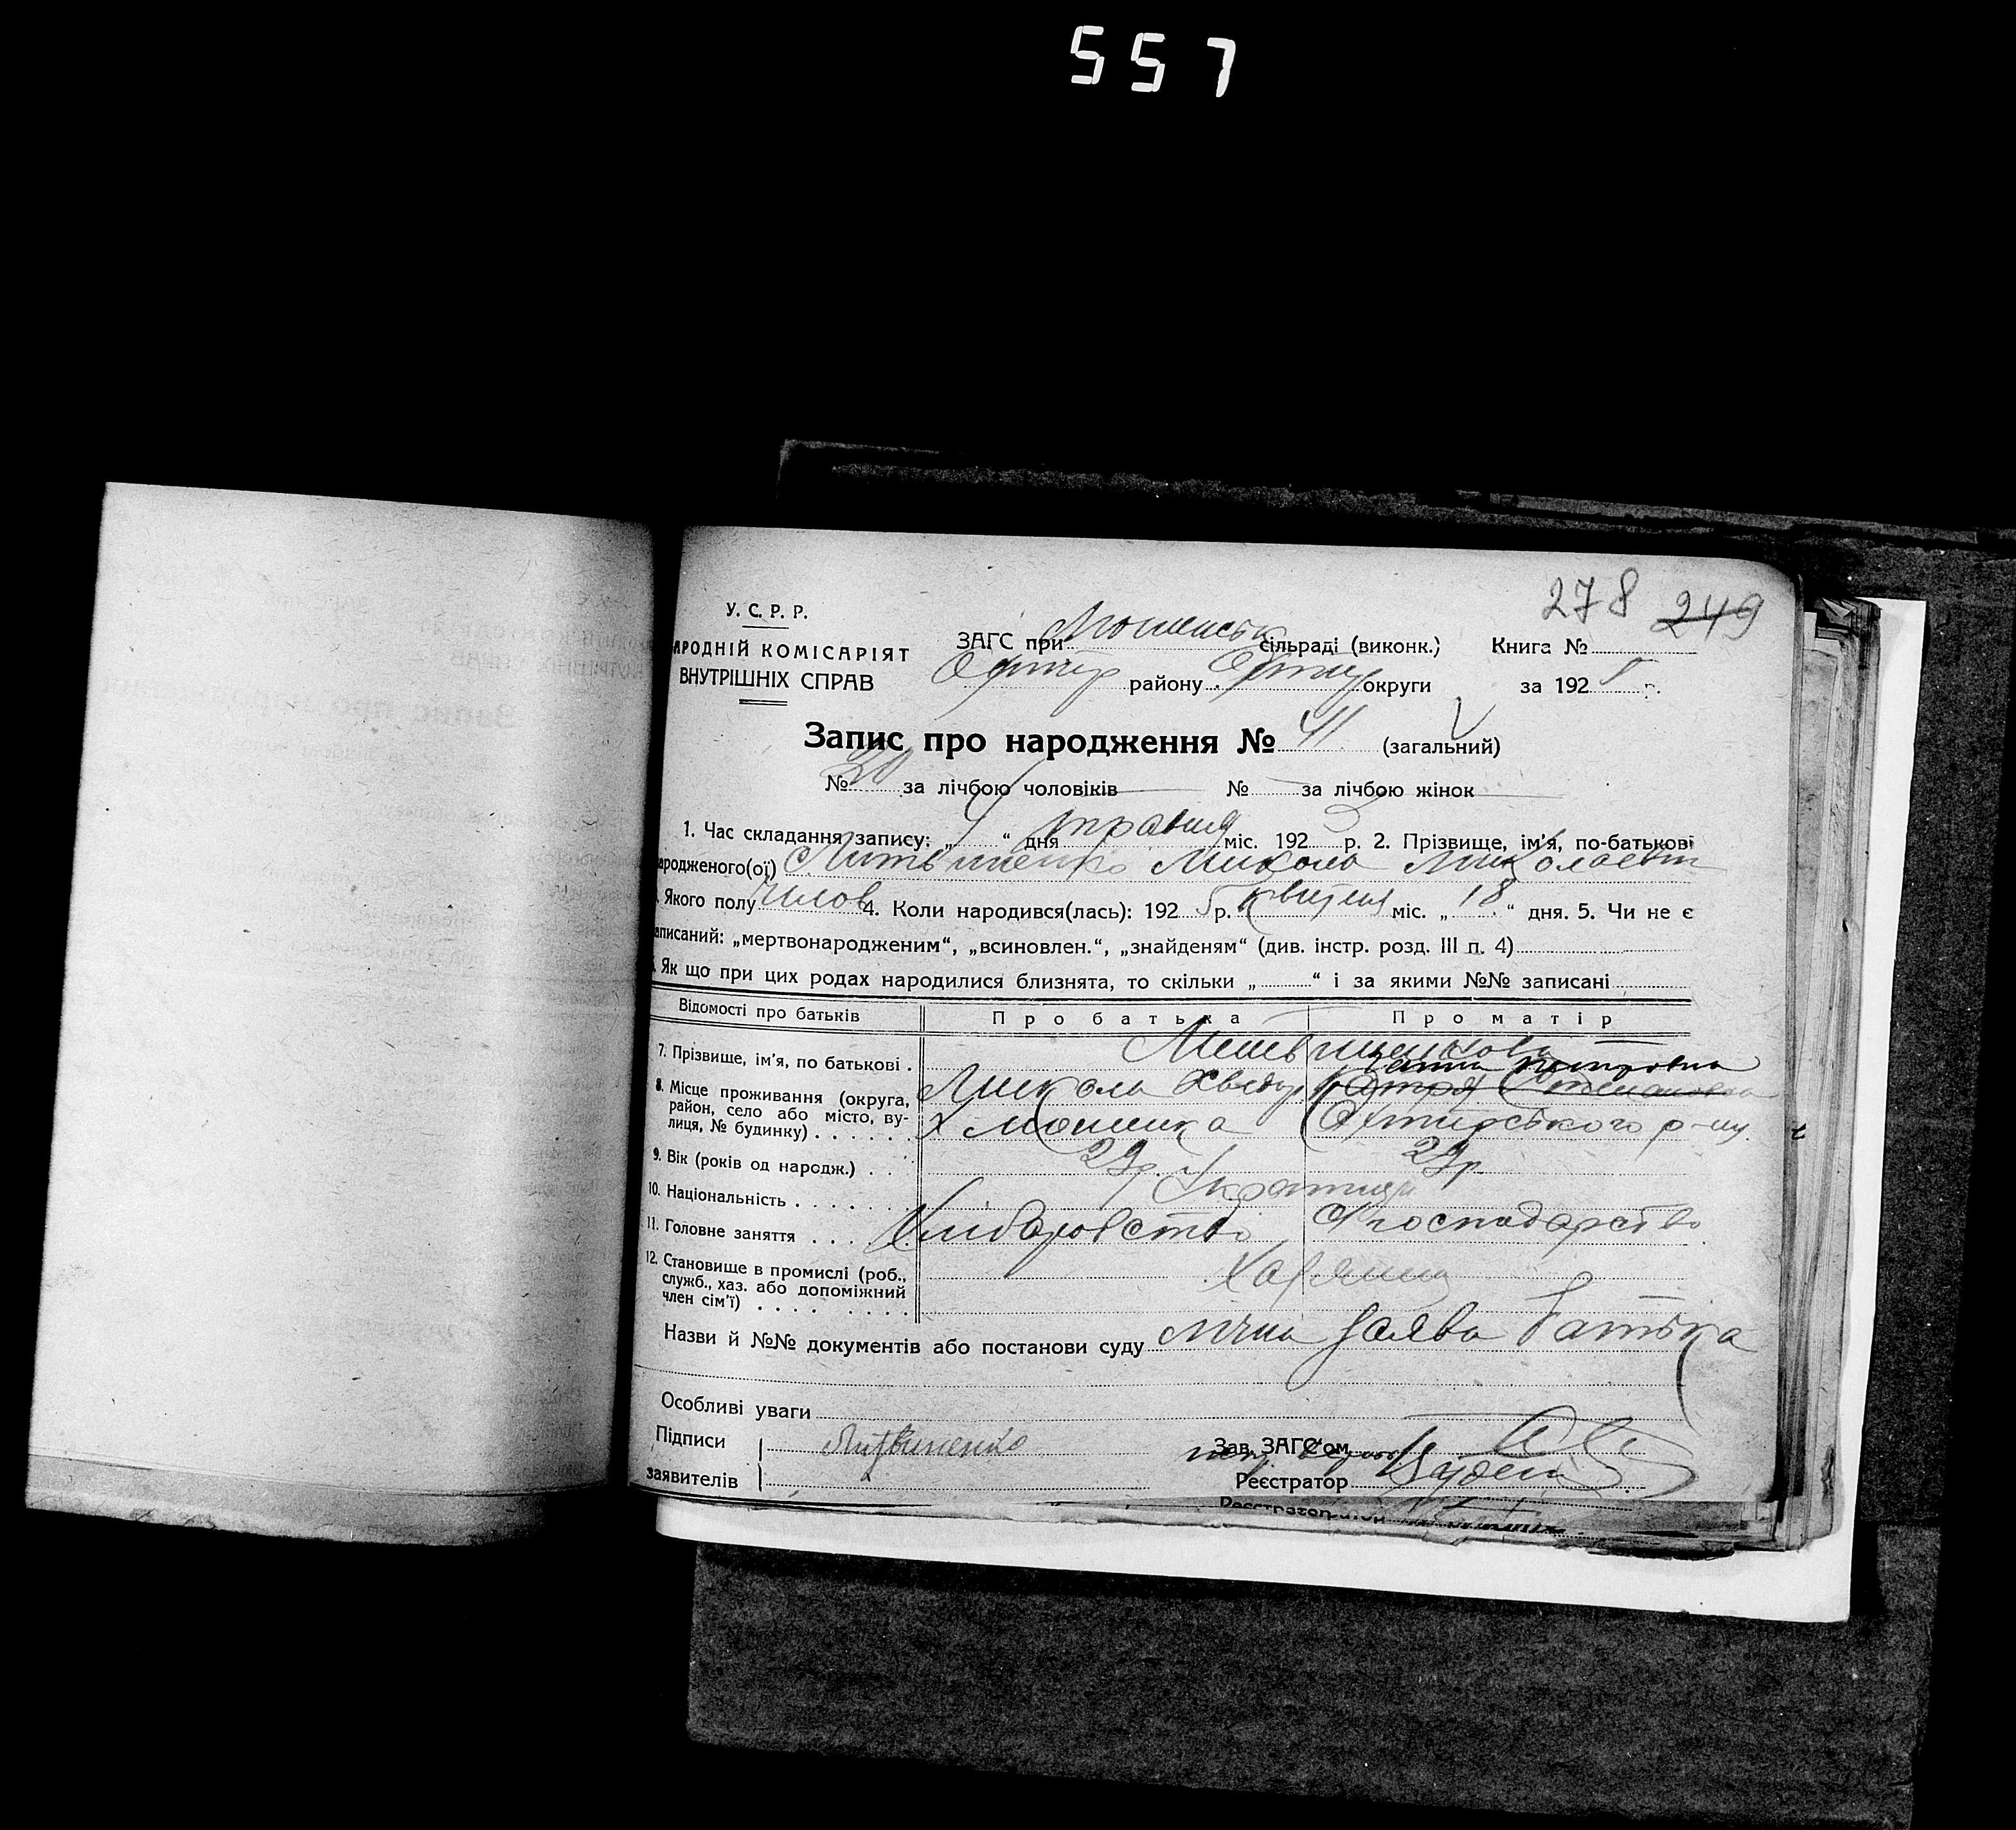 557
278 249
У. С. Р. Р.
АРОДНІЙ КОМІСАРІЯТ
ВНУТРІШНІХ СПРАВ
ЗАГС при сільраді (виконк.) Книга №
району округи за 192 5 р.
Запис про народження № 41 (загальний)
№ 20 за лічбою чоловіків № за лічбою жінок
1. Час складання запису: „ “ дня травня міс. 192 5 р. 2. Прізвище, ім'я, по-батькові
ародженого(ої) Литвиненко Микола Миколаєвич
Якого полу чилов 4. Коли народився(лась): 192 5 р. квитня міс. „ 18 “ дня. 5. Чи не є
аписаний: „мертвонародженим“, „всиновлен.“, „знайденям“ (див. інстр. розд. III п. 4)
. Як що при цих родах народилися близнята, то скільки „ “ і за якими №№ записані
Відомості про батьків Про батька Про матір
7. Прізвище, ім'я, по батькові
Ганна Петровна
Микола Хведор
8. Місце проживання (округа, район, село або місто, вулиця, № будинку)
х Мошинка Охтирського р-ну
9. Вік (років од народж.) 29р. 29р.
10. Національність
11. Головне заняття господарство
12. Становище в промислі (роб., служб., хаз. або допоміжний член сім'ї)
Назви й №№ документів або постанови суду лична заява батька
Особливі уваги
Підписи Литвиненко Зав. ЗАГС'ом
заявителів Реєстратор
Реєстратор